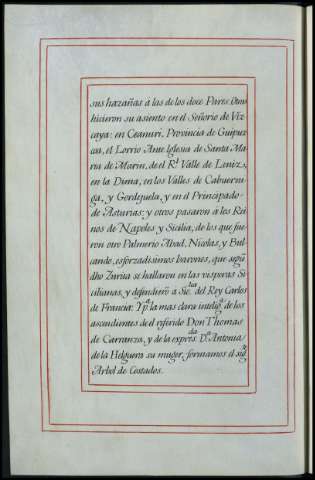 sus hazañas a las de los doce Pares Unos
hicieron su asiento en el Señorio de Viz
caya: en Ceanuri. Provincia de Guipuz
coa, el Lorrio Ante Iglesia de Santa Ma
ria de Marin, de el Rl. Valle de Leniz,
en la Dima, en los Valles de Cabuerni
ga, y Gordejuela, y en el Principado
de Asturias; y otros pasaron a los Rei
nos de Napoles y Sicilia, de los que fue
ron otro Palmerio Abad, Nicolas, y Bul
cando, esforzadisimos barones, que segũ
dho Zurita se hallaron en las visperas Si
cilianas, y defendierõ a Sicilia del Rey Carlos
de Francia: Y pa. la mas clara inteliga. de los
ascendientes de el referido Don Thomas
de Carranza, y de la expresada Da. Antonia
de la Helguera su muger, formamos el sigte
Arbol de Costados.